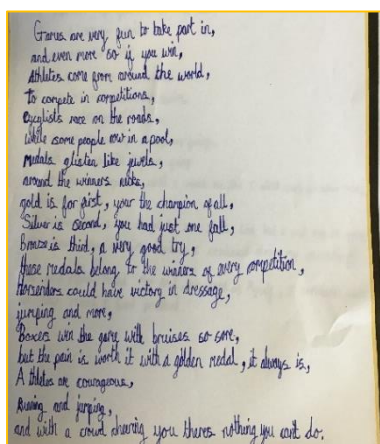 Games are very fun to take part in,
and even more so if you win,
Athletes come from around the world,
to compete in competitions,
cycylists race on the roads,
while some people row in a pool,
Medals glisten like jewels,
around the winners necks,
gold is for first, your the champion of all,
Silver is second, you had just one fall,
Bronze is third, a very good try,
these medals belong to the winners of every competition,
Horseriders could have victory in dressage,
jumping and more,
Boxers win the game with bruises so sore,
but the pain is worth it with a golden medal, it always is,
Athletes are courageous,
Running and jumping,
and with a crowd cheering you theres nothing you cant do.